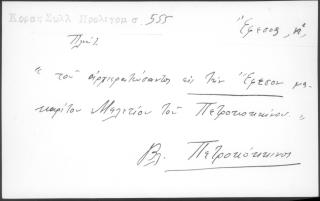 Κοραῆ Συλλ Προλεγομ σ. 555
Ἔφεσος, ἡ,
Πλήθ.
« τοῦ ἀρχιερατεύσαντος εἰς τὴν Ἔφεσον μα-
καρίτου Μελετίου τοῦ Πετροκοκκίνου. »
Βλ. Πετροκόκκινος